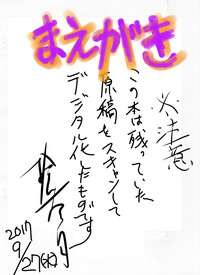 まえがき
※注意
この本は残っていた
原稿をスキャンして
デジタル化したものです
2017
9/27(水)